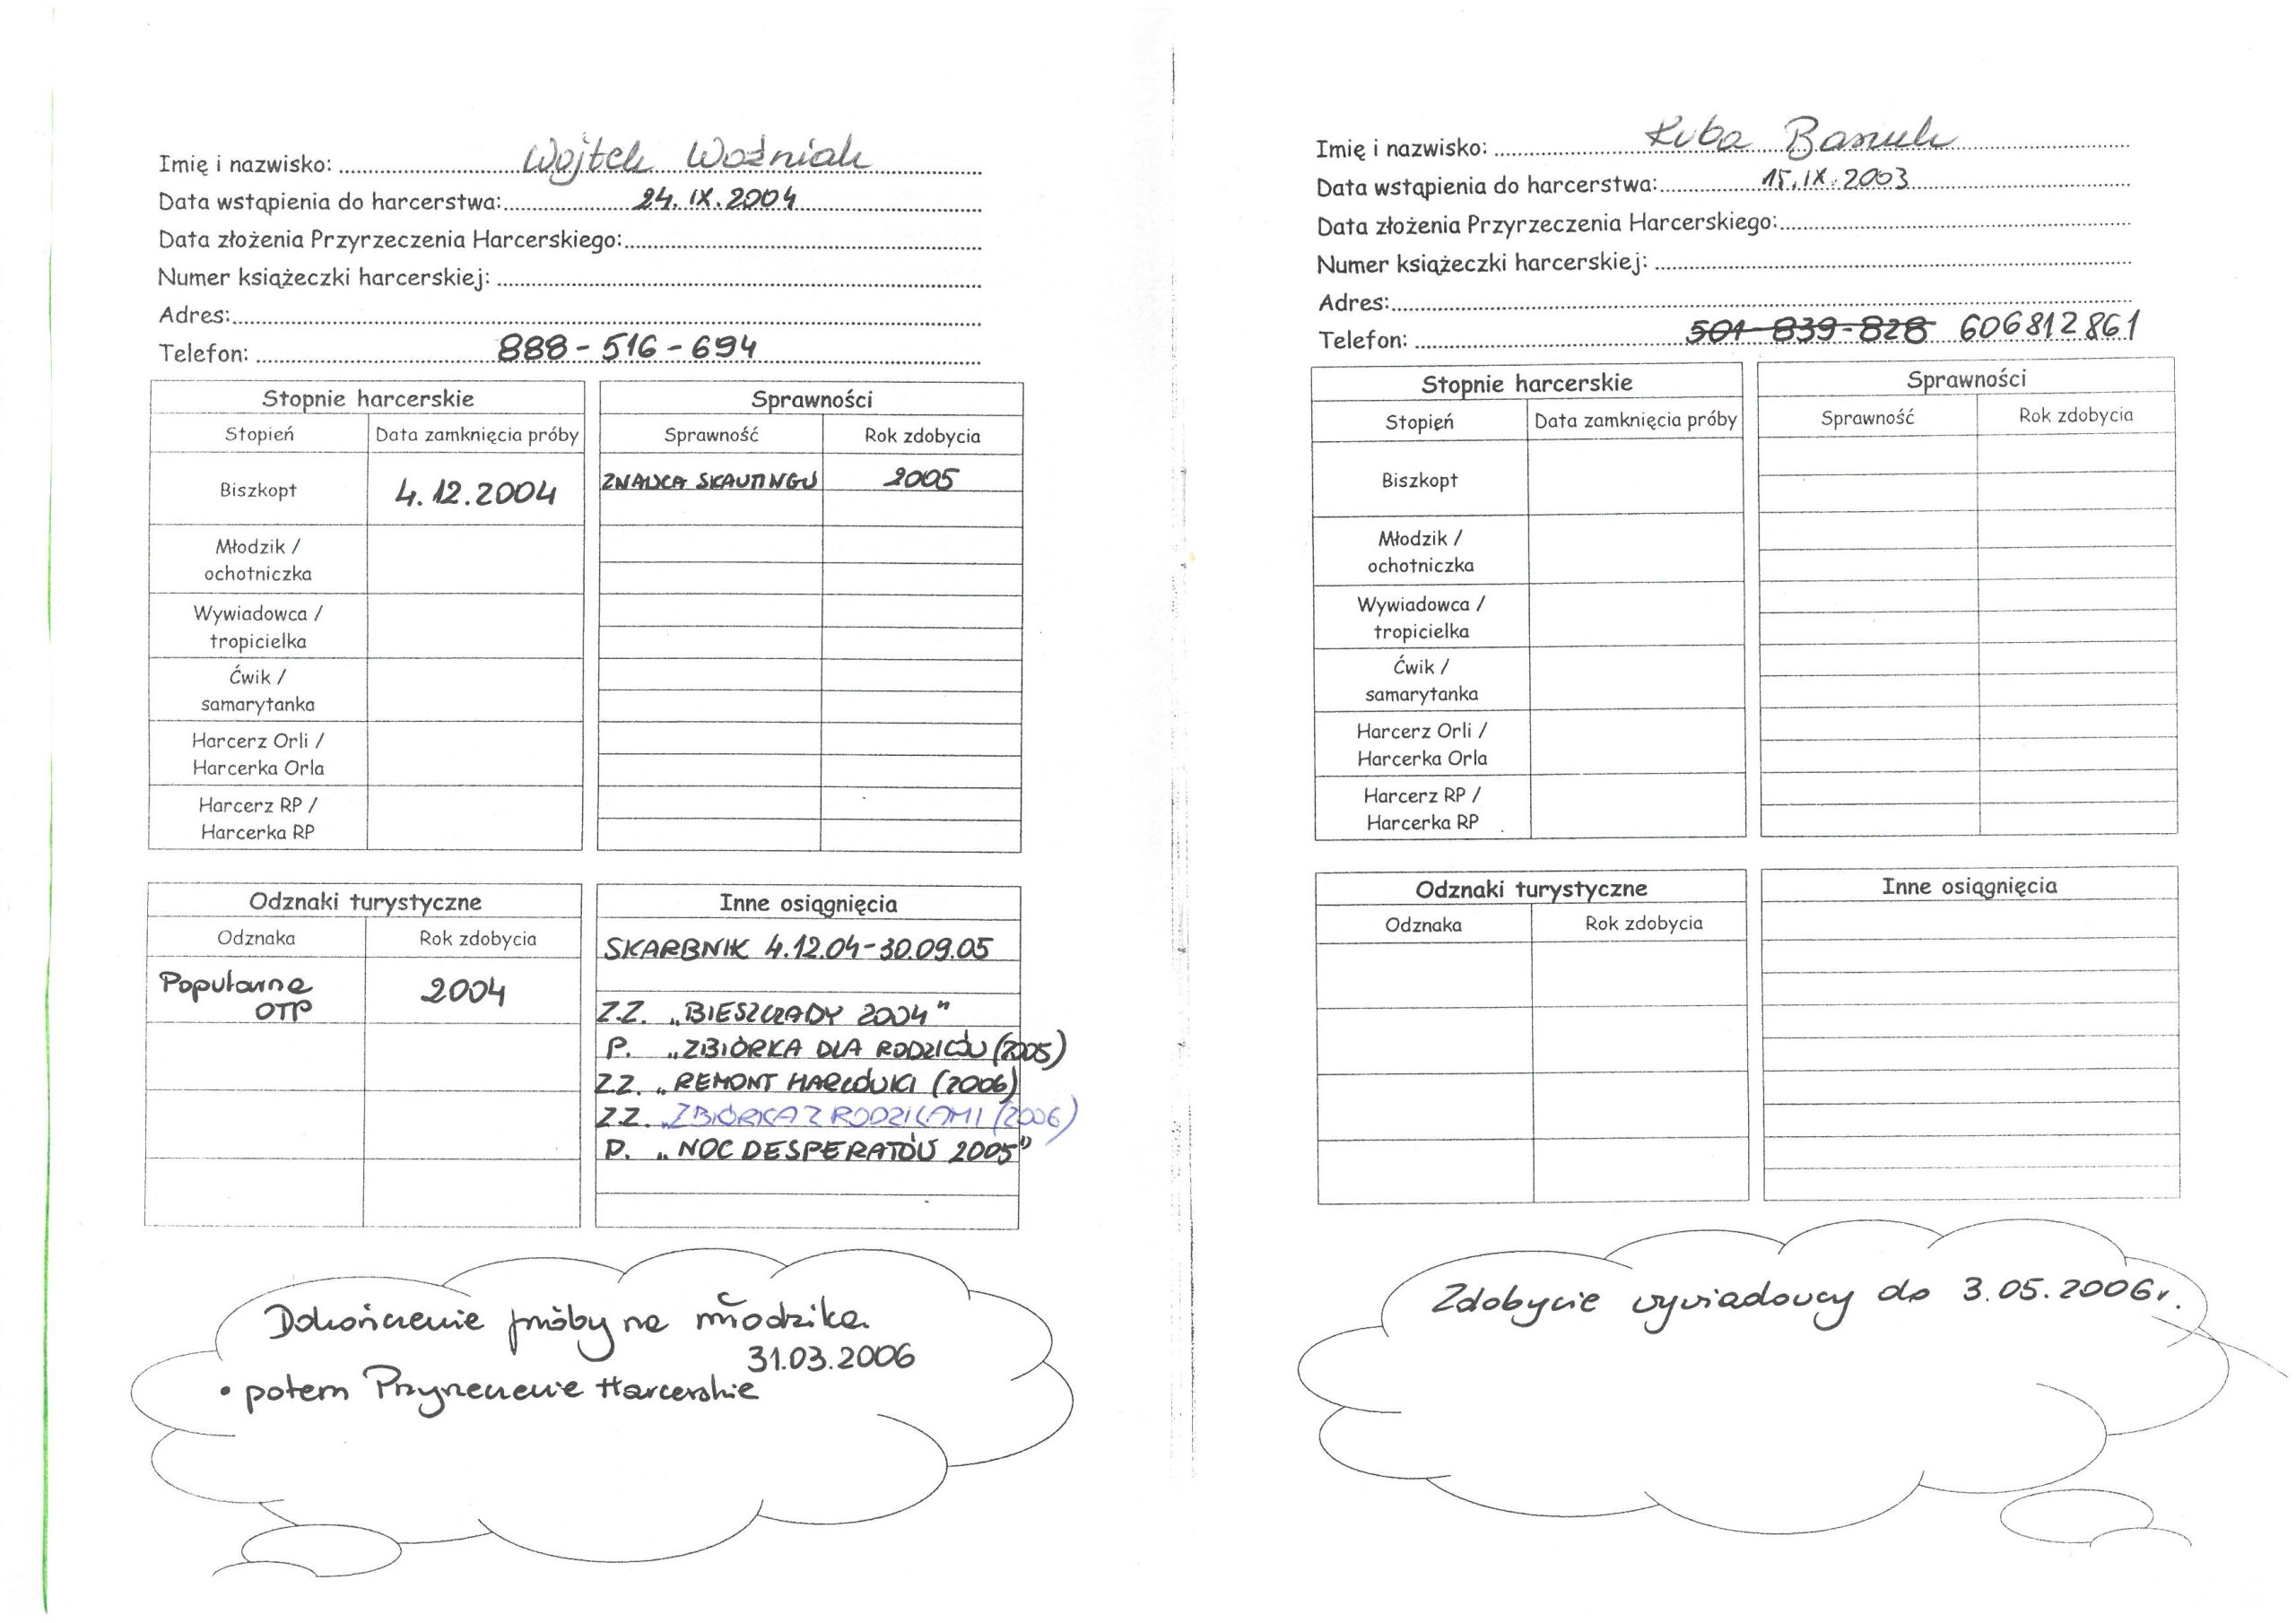 Imię i nazwisko: Wojtek Woźniak
Data wstąpienia do harcerstwa: 24.IX.2004
Data złożenia Przyrzeczenia Harcerskiego:
Numer książeczki harcerskiej:
Adres:
Telefon: 888-516-694
Stopnie harcerskie Sprawności
Stopień Data zamknięcia próby Sprawność Rok zdobycia
Biszkopt 4.12.2004 ZNAWCA SKAUTINGU 2005
Młodzik /
ochotniczka
Wywiadowca /
tropicielka
Ćwik /
samarytanka
Harcerz Orli /
Harcerka Orla
Harcerz RP /
Harcerka RP
Odznaki turystyczne Inne osiągnięcia
Odznaka Rok zdobycia
SKARBNIK 4.12.04-30.09.05
Popularna 2004
OTP
Z.Z. „BIESZCZADY 2004"
P. „ZBIÓRKA DLA RODZICÓW (2005)
Z.Z. „REMONT HARCÓWKI (2006)
Z.Z. „ZBIÓRKA Z RODZICAMI (2006)
P. „NOC DESPERATÓW 2005"
Dokończenie próby na młodzika
31.03.2006
• potem Przyrzeczenie Harcerskie
Imię i nazwisko: Kuba
Data wstąpienia do harcerstwa: 15.IX.2003
Data złożenia Przyrzeczenia Harcerskiego:
Numer książeczki harcerskiej:
Adres:
Telefon: 501-839-828 606812861
Stopnie harcerskie Sprawności
Stopień Data zamknięcia próby Sprawność Rok zdobycia
Biszkopt
Młodzik /
ochotniczka
Wywiadowca /
tropicielka
Ćwik /
samarytanka
Harcerz Orli /
Harcerka Orla
Harcerz RP /
Harcerka RP
Odznaki turystyczne Inne osiągnięcia
Odznaka Rok zdobycia
Zdobycie wywiadowcy do 3.05.2006r.